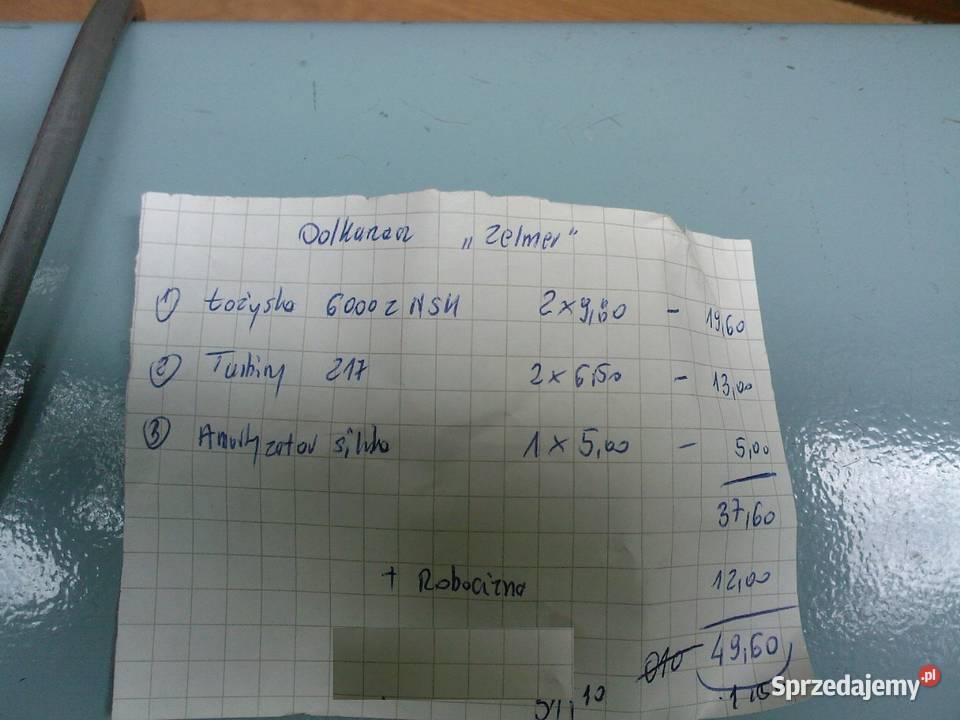 Odkurzacz „Zelmer"
1) Łożyska 6000z NSK 2 x 9,80 - 19,60
2) Turbiny 217 2 x 6,50 - 13,00
3) Amortyzator silnka 1 x 5,00 - 5,00
37,60
+ Robocizna 12,00
49,60
10
Sprzedajemy.pl